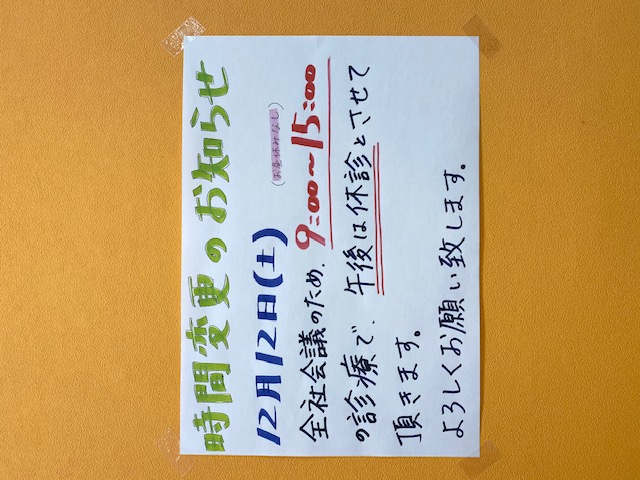 時間変更のお知らせ
12月12日(土)
(お昼休みなし)
全社会議のため、9:00〜15:00
の診療で、午後は休診とさせて
頂きます。
よろしくお願い致します。